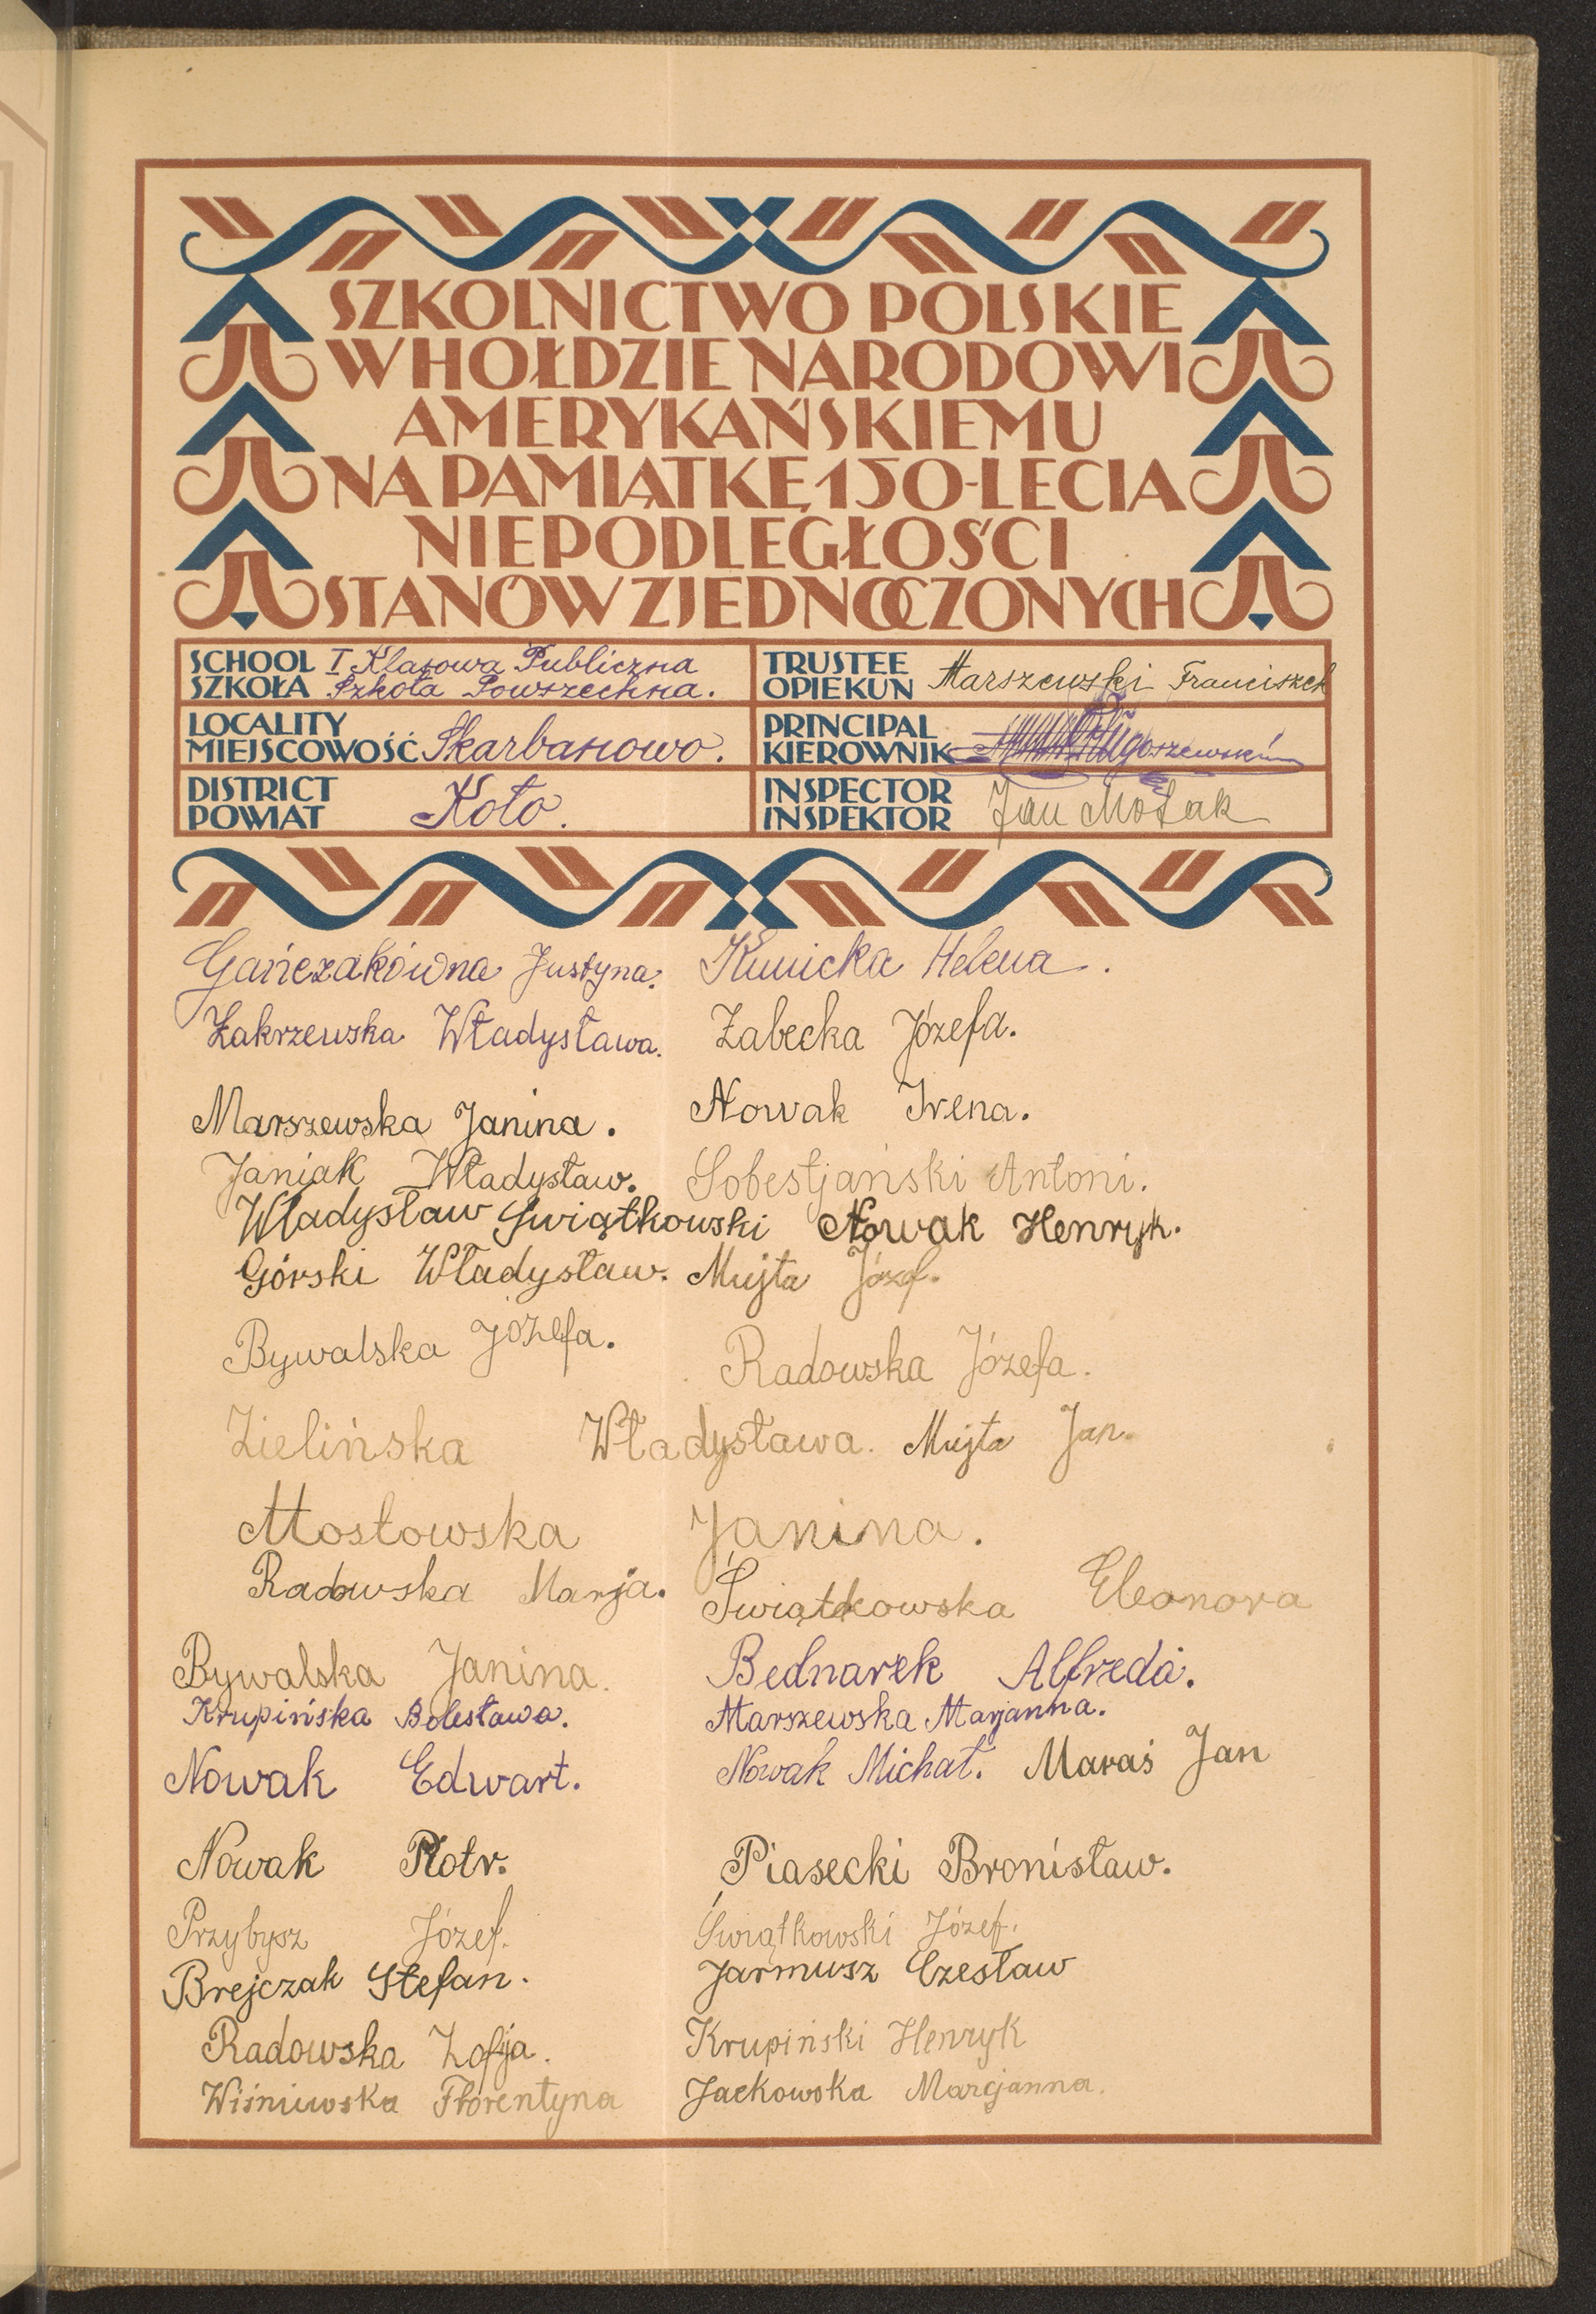 SZKOLNICTWO POLSKIE
W HOŁDZIE NARODOWI
AMERYKAŃSKIEMU
NA PAMIĄTKĘ 150-LECIA
NIEPODLEGŁOŚCI
STANÓW ZJEDNOCZONYCH
SCHOOL
SZKOŁA
I Klasowa Publiczna
Szkoła Powszechna.
TRUSTEE
OPIEKUN
Marszewski Franciszek
LOCALITY
MIEJSCOWOŚĆ
Skarbanowo.
PRINCIPAL
KIEROWNIK
DISTRICT
POWIAT
Koło.
INSPECTOR
INSPEKTOR
Jan
Gańczakówna Justyna. Kunicka Helena.
Zakrzewska Władysława. Żabecka Józefa.
Marszewska Janina. Nowak Irena.
Janiak Władysław. Sobestjański Antoni.
Władysław Swiątkowski Nowak Henryk.
Górski Władysław. Mujta Józef.
Bywalska Józefa. Radowska Józefa.
Zielińska Władysława. Mujta Jan.
Mostowska Janina.
Radowska Marja. Świątkowska Eleonora
Bywalska Janina. Bednarek Alfreda.
Krupińska Bolesława. Marszewska Marjanna.
Nowak Edwart. Nowak Michał. Maraś Jan
Nowak Piotr. Piasecki Bronisław.
Przybysz Józef. Świątkowski Józef.
Brejczak Stefan. Jarmusz Czesław
Radowska Zofja. Krupiński Henryk
Wiśniewska Florentyna Jackowska Marjanna.